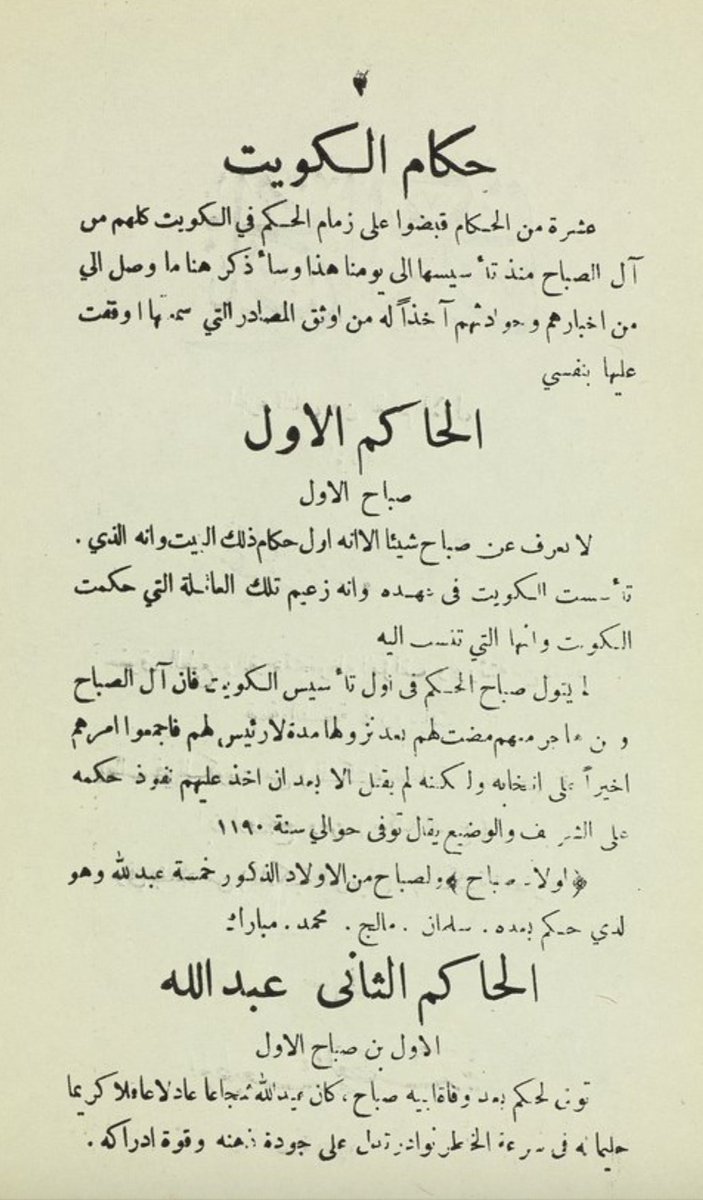 حكام الكويت
عشرة من الحكام قبضوا على زمام الحكم في الكويت كلهم من
آل الصباح منذ تأسيسها الى يومنا هذا وسأذكر هنا ما وصل الي
من اخبارهم وحوادثهم آخذاً له من اوثق المصادر التي سمعتها او وقفت
عليها بنفسي
الحاكم الاول
صباح الاول
لا يعرف عن صباح شيئا الا انه اول حكام ذلك البيت وانه الذي .
تأسست الكويت في عهده وانه زعيم تلك العائلة التي حكمت
الكويت وانها التي تنسب اليه
لم يتول صباح الحكم في اول تأسيس الكويت فان آل الصباح
ومن هاجر معهم مضت لهم بعد نزولها مدة لا رئيس لهم فاجمعوا امرهم
اخيراً على انتخابه ولكنه لم يقبل الا بعد ان اخذ عليهم نفوذ حكمه
على الشريف والوضيع يقال توفى حوالي سنة ١١٩٠
﴿اولاد صباح﴾ ولصباح من الاولاد الذكور خمسة عبدالله وهو
لدي حكم بعده . سلمان . مالج . محمد . مبارك
الحاكم الثانى عبدالله
الاول بن صباح الاول
تولى لحكم بعد وفاة ابيه صباح ، كان عبدالله شجاعا عادلا عاقلا كريما
حليما له في سرعة الخاطر نوادر تدل على جودة ذهنه وقوة ادراكه .